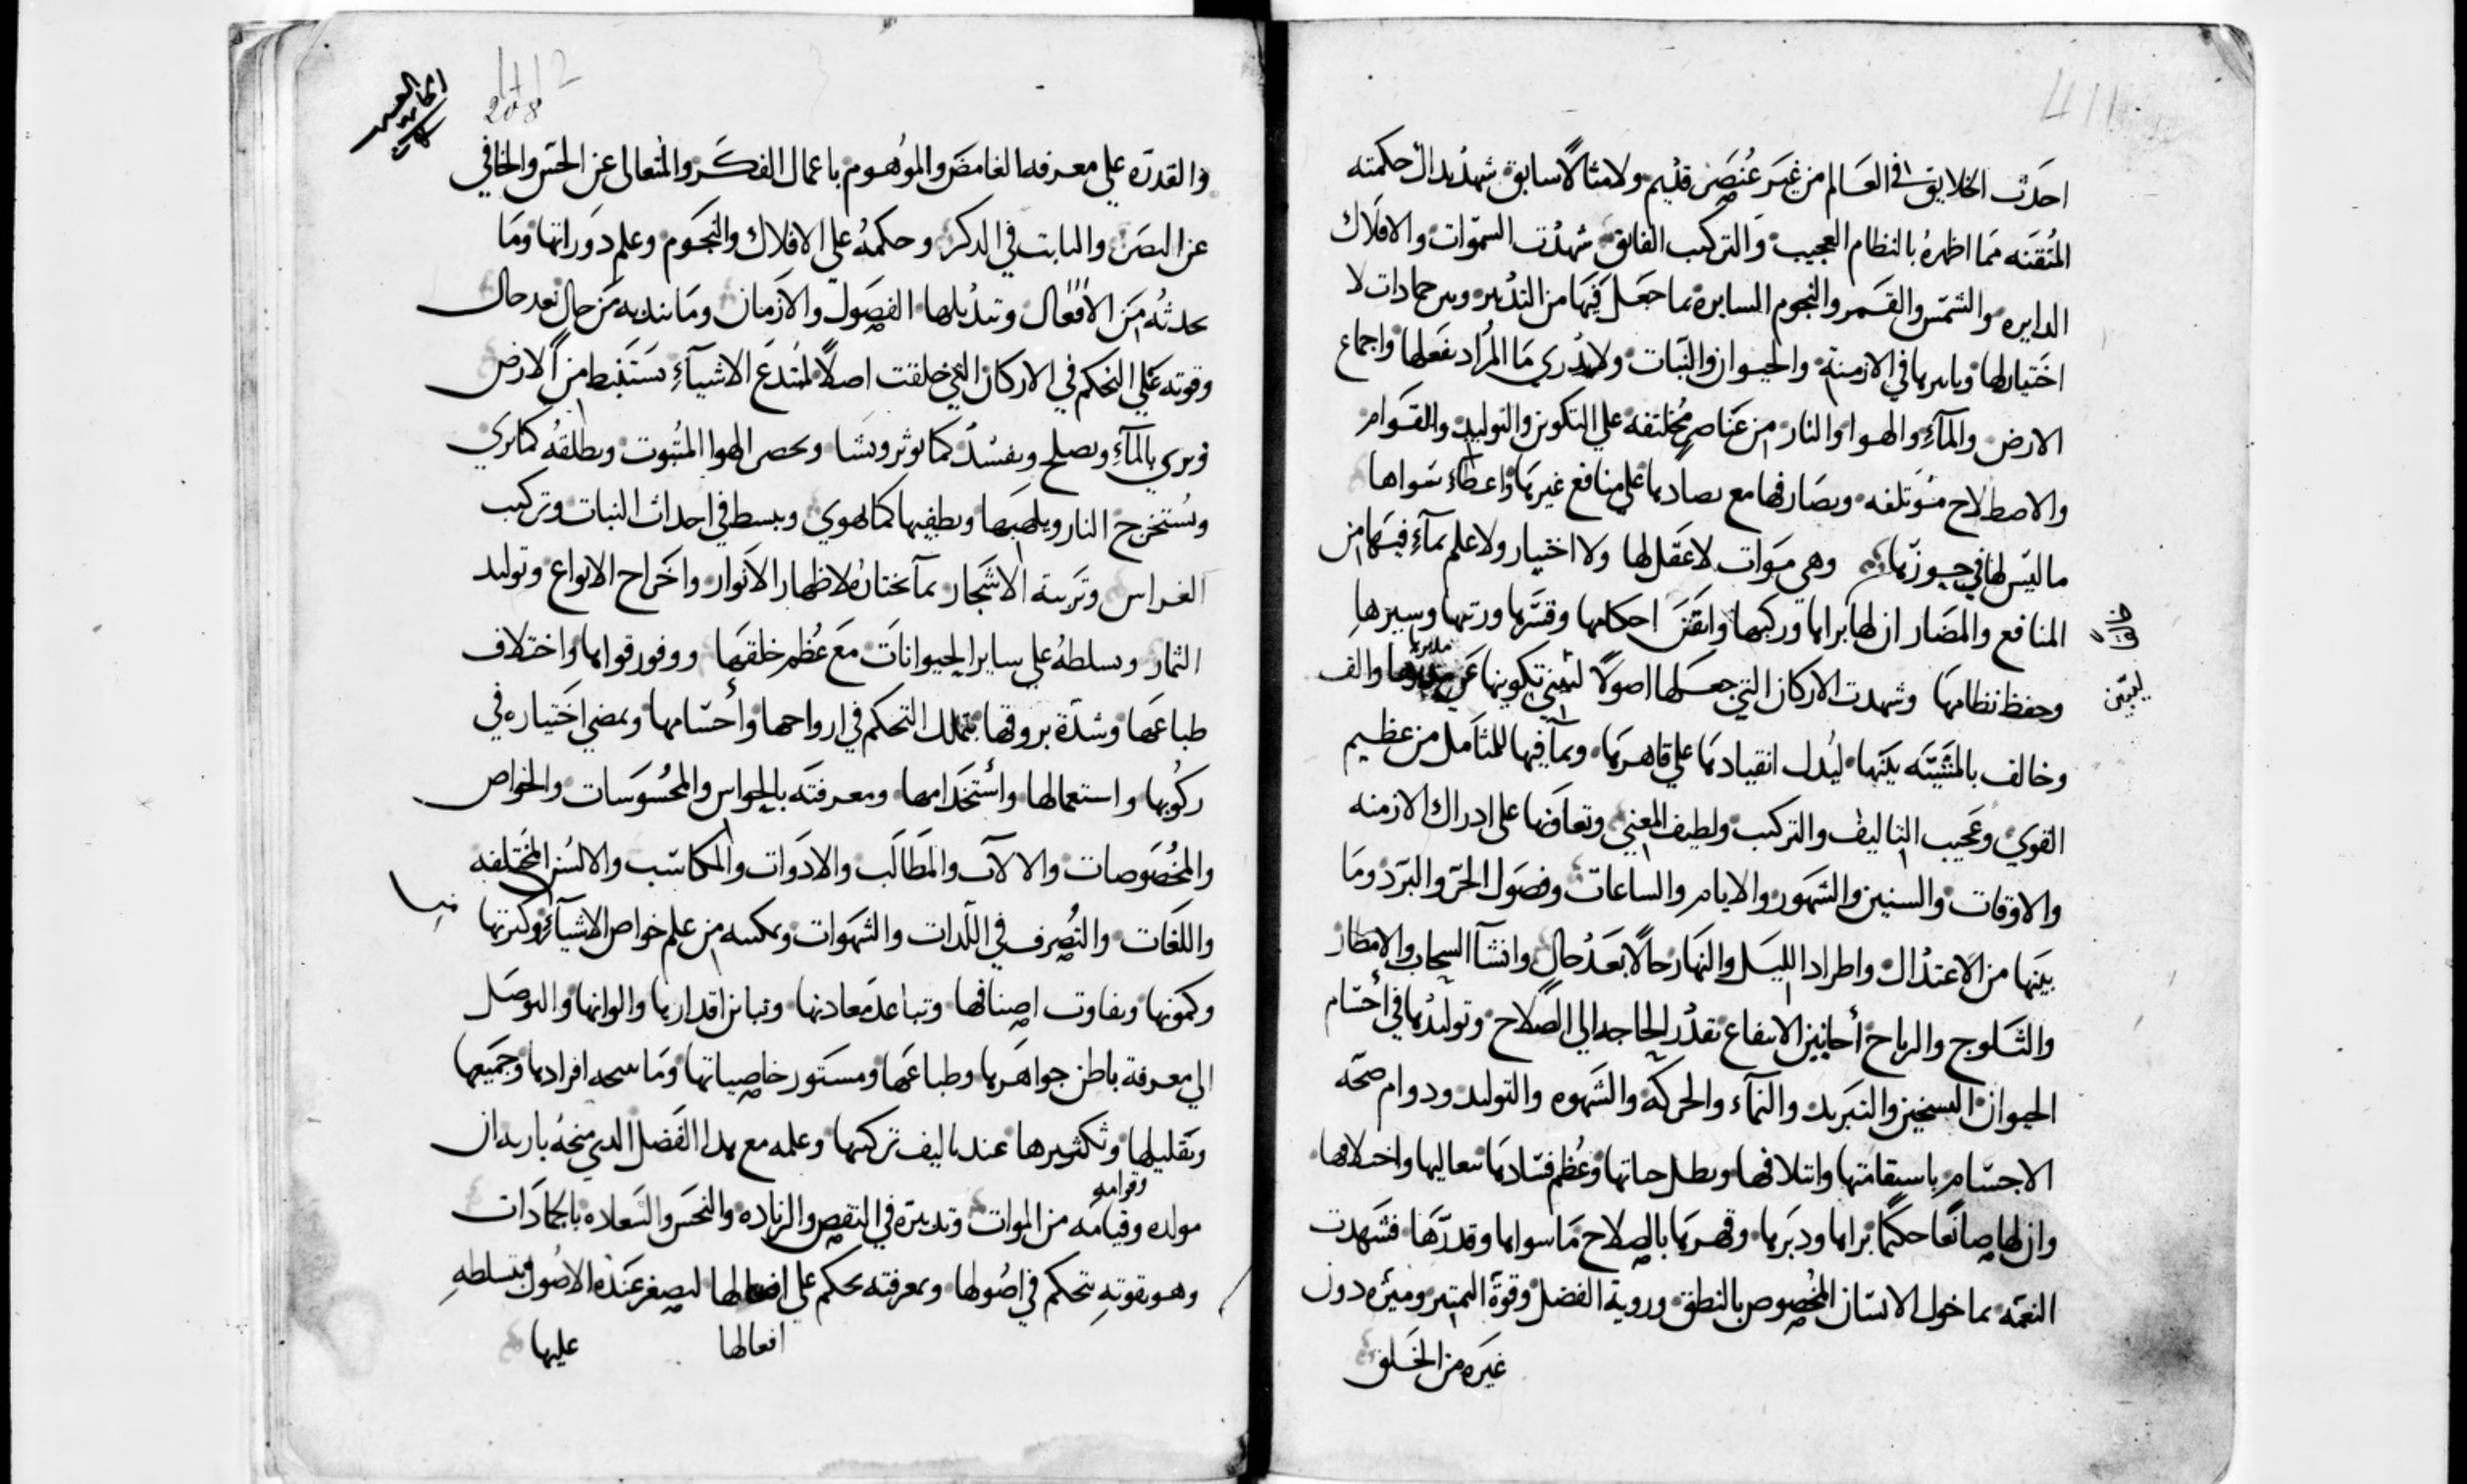 411
احدث الخلايق في العالم من غير عنصر قديم ولا مثالاً سابق شهد بدال حكمته
المتقنه مما اظهره بالنظام العجيب والتركيب الفايق شهدت السموات والافلاك
الدايره والشمس والقمر والنجوم السايره بما جعل فيها من التدبير وهى جمادات لا
اختيار لها وتاثيرها في الازمنة والحيوان والنبات ولا تدري ما المراد بفعلها واجماع
الارض والمآء والهوا والنار من عناصر مختلفه علي التكوين والتوليد والقوام
والاصطلاح مؤتلفه وتصارفها مع تضادها علي منافع غيرها واعطاء سواها
ما ليس لها في حوزتها وهى موات لا عقل لها ولا اختيار ولا علم بمآء فيها من
المنافع والمضار ان لها براها وركبها واتقن احكامها وقسّرها ورتبها وسيرها
وحفظ نظامها وشهدت الاركان التي جعلها اصولاً تكوينها عن والف
لتبيين
وخالف بالمشيّئه بينها ليدل انقيادها علي قاهرها وبمآ فيها للمتامل من عظيم
القوي وعجيب التاليف والتركيب ولطيف المعني وتعاونها على ادراك الازمنه
والاوقات والسنين والشهور والايام والساعات وفصول الحرّ والبرد وما
بينها من الاعتدال واطراد الليل والنهار حالاً بعد حال وانشآ السحاب والامطار
والثلوج والرياح أحايين الانتفاع بقدر الحاجه الي الصلاح وتوليدها في أجسام
الحيوان التسخين والتبريد والنمآء والحركه والشهوه والتوليد ودوام صحة
الاجسام باستقامتها وائتلافها وبطل حياتها وعظم فسادها بتعاليها واختلافها
وان لها صانعًا حكيمًا براها ودبرها وقهرها بالصلاح ما سواها وقدرها فشهدت
النعمه بما خول الانسان المخصوص بالنطق وروية الفضل وقوة التمييز وميّزه دون
غيره من الخلق
412
208
والقدره علي معرفه الغامض والموهوم باعمال الفكر والمتعالى عن الحس والخافي
عن البصر والثابت في الذكر وحكمهُ علي الافلاك والنجوم وعلم دوراتها وما
يحدثه من الافعال وتبديلها الفصول والازمان وما تبديه من حال بعد حال
وقوته علي التحكم في الاركان التي خلقت اصلاً لمبتدع الاشيآء يستنبط من الارض
ويري بالمآء ويصلح ويفسد كما يوثر ويشا ويحصر الهوا المثبوت ويطلقه كما يري
ويستخرج النار ويلهبها ويطفيها كما يهوي ويبسط في احداث النبات وتركيب
الغراس وتربية الاشجار بمآ يختاره لاظهار الانوار واخراج الانواع وتوليد
الثمار وتسلطهُ علي ساير الحيوانات مع عظم خلقها ووفور قواها واختلاف
طباعها وشدة بروقها بتملك التحكم في ارواحها وأجسامها وبمضي اختياره في
ركوبها واستعمالها واستخدامها ومعرفته بالحواس والمحسوسات والخواص
والمخصوصات والالآت والمطالب والادوات والمكاسب والالسن المختلفه
واللغات والتصرف في اللذات والشهوات وتمكنه من علم خواص الاشيآء وكثرتها
وكمونها وتفاوت اصنافها وتباعد معادنها وتباين اقدارها والوانها والتوصل
الي معرفة باطن جواهرها وطباعها ومستور خاصياتها وما افرادها وجميعها
وتقليلها وتكثيرها عند تاليف تركيبها وعلمه مع هذا الفضل الذي منحهُ باريه ان
مولده وقيامه من الموات وتدبيره في النقص والزياده والنحس والسعاده بالجمادات
وقوامه
وهو بقوته يتحكم في اصولها وبمعرفته يحكم علي افعالها ليصغر عنده الاصول بتسلطه
افعالها
عليها